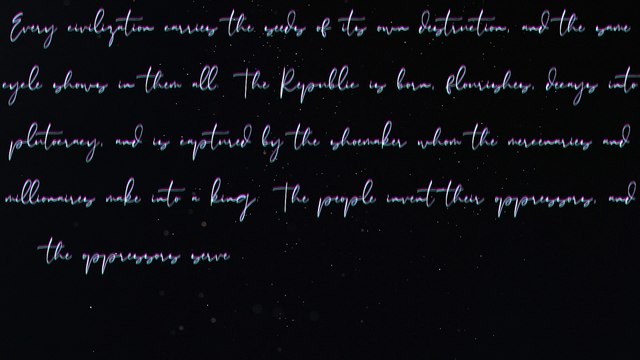 Every civilization carries the seeds of its own destruction, and the same
cycle shows in them all. The Republic is born, flourishes, decays into
plutocracy, and is captured by the shoemaker whom the mercenaries and
millionaires make into a king. The people invent their oppressors, and
the oppressors serve